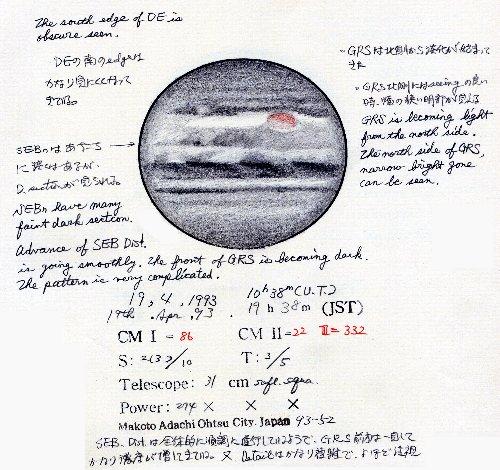 The south edge of DE is
obscure seen.
DEの南のedgeは
かなり見にくくなって
きている。
SEBnはあちこち
に淡くはあるが、
D. sectionが見られる。
SEBn have many
faint dark section.
Advance of SEB Dist.
is going smoothly. The front of GRS is becoming dark.
The pattern is very complicated.
・GRSは北側から淡化が始まって
きた
・GRS北側にはseeingの良い
時、幅の狭い明部が見える
GRS is becoming light
from the north side.
The north side of GRS,
narrow bright zone
can be seen.
19, 4, 1993 10h38m (U.T.)
19th. Apr. 93. 19h38m (JST)
CM I = 86 CM II = 22 III = 332
S: /10 T: 3/5
Telescope: 31 cm refl. equa.
Power: 274 × × ×
Makoto Adachi Ohtsu City. Japan 93-52
SEB. Dist.は全体的に順調に進行しているようで、GRS前方は一直して
かなり濃度が増してきている。又 Detailはかなり複雑で、よほど注視